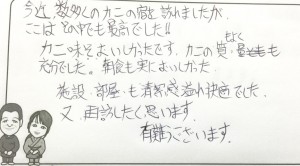 今迄、数多くのカニの宿を訪れましたが
ここはその中でも最高でした!!
カニ味そがよいしかったです。カニの質・量ともも
充分でした。朝食も実によいしかった
施設・部屋・も清潔感溢れ快適でした
又、再訪したく思います。
有難うございます。